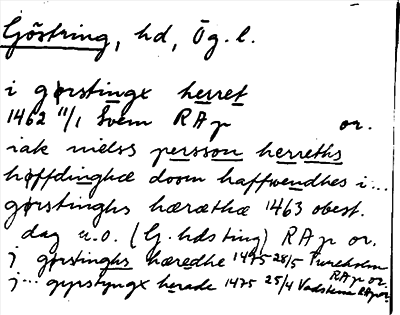 Göstring, hd, Ög. l.
i gørstingx herret
1462 11/1 Svem RAp or.
iak nielss persson herreths
høffdinghæ doom haffwendhes i...
gørstinghs hæræthæ 1463 obest.
dag u.o. (G. hds ting) RAp or.
j gørstinghs hæredhe 1475 28/5 Pureholm RAp or.
j... gyrstyngx herade 1475 25/4 Vadstena RAp or.